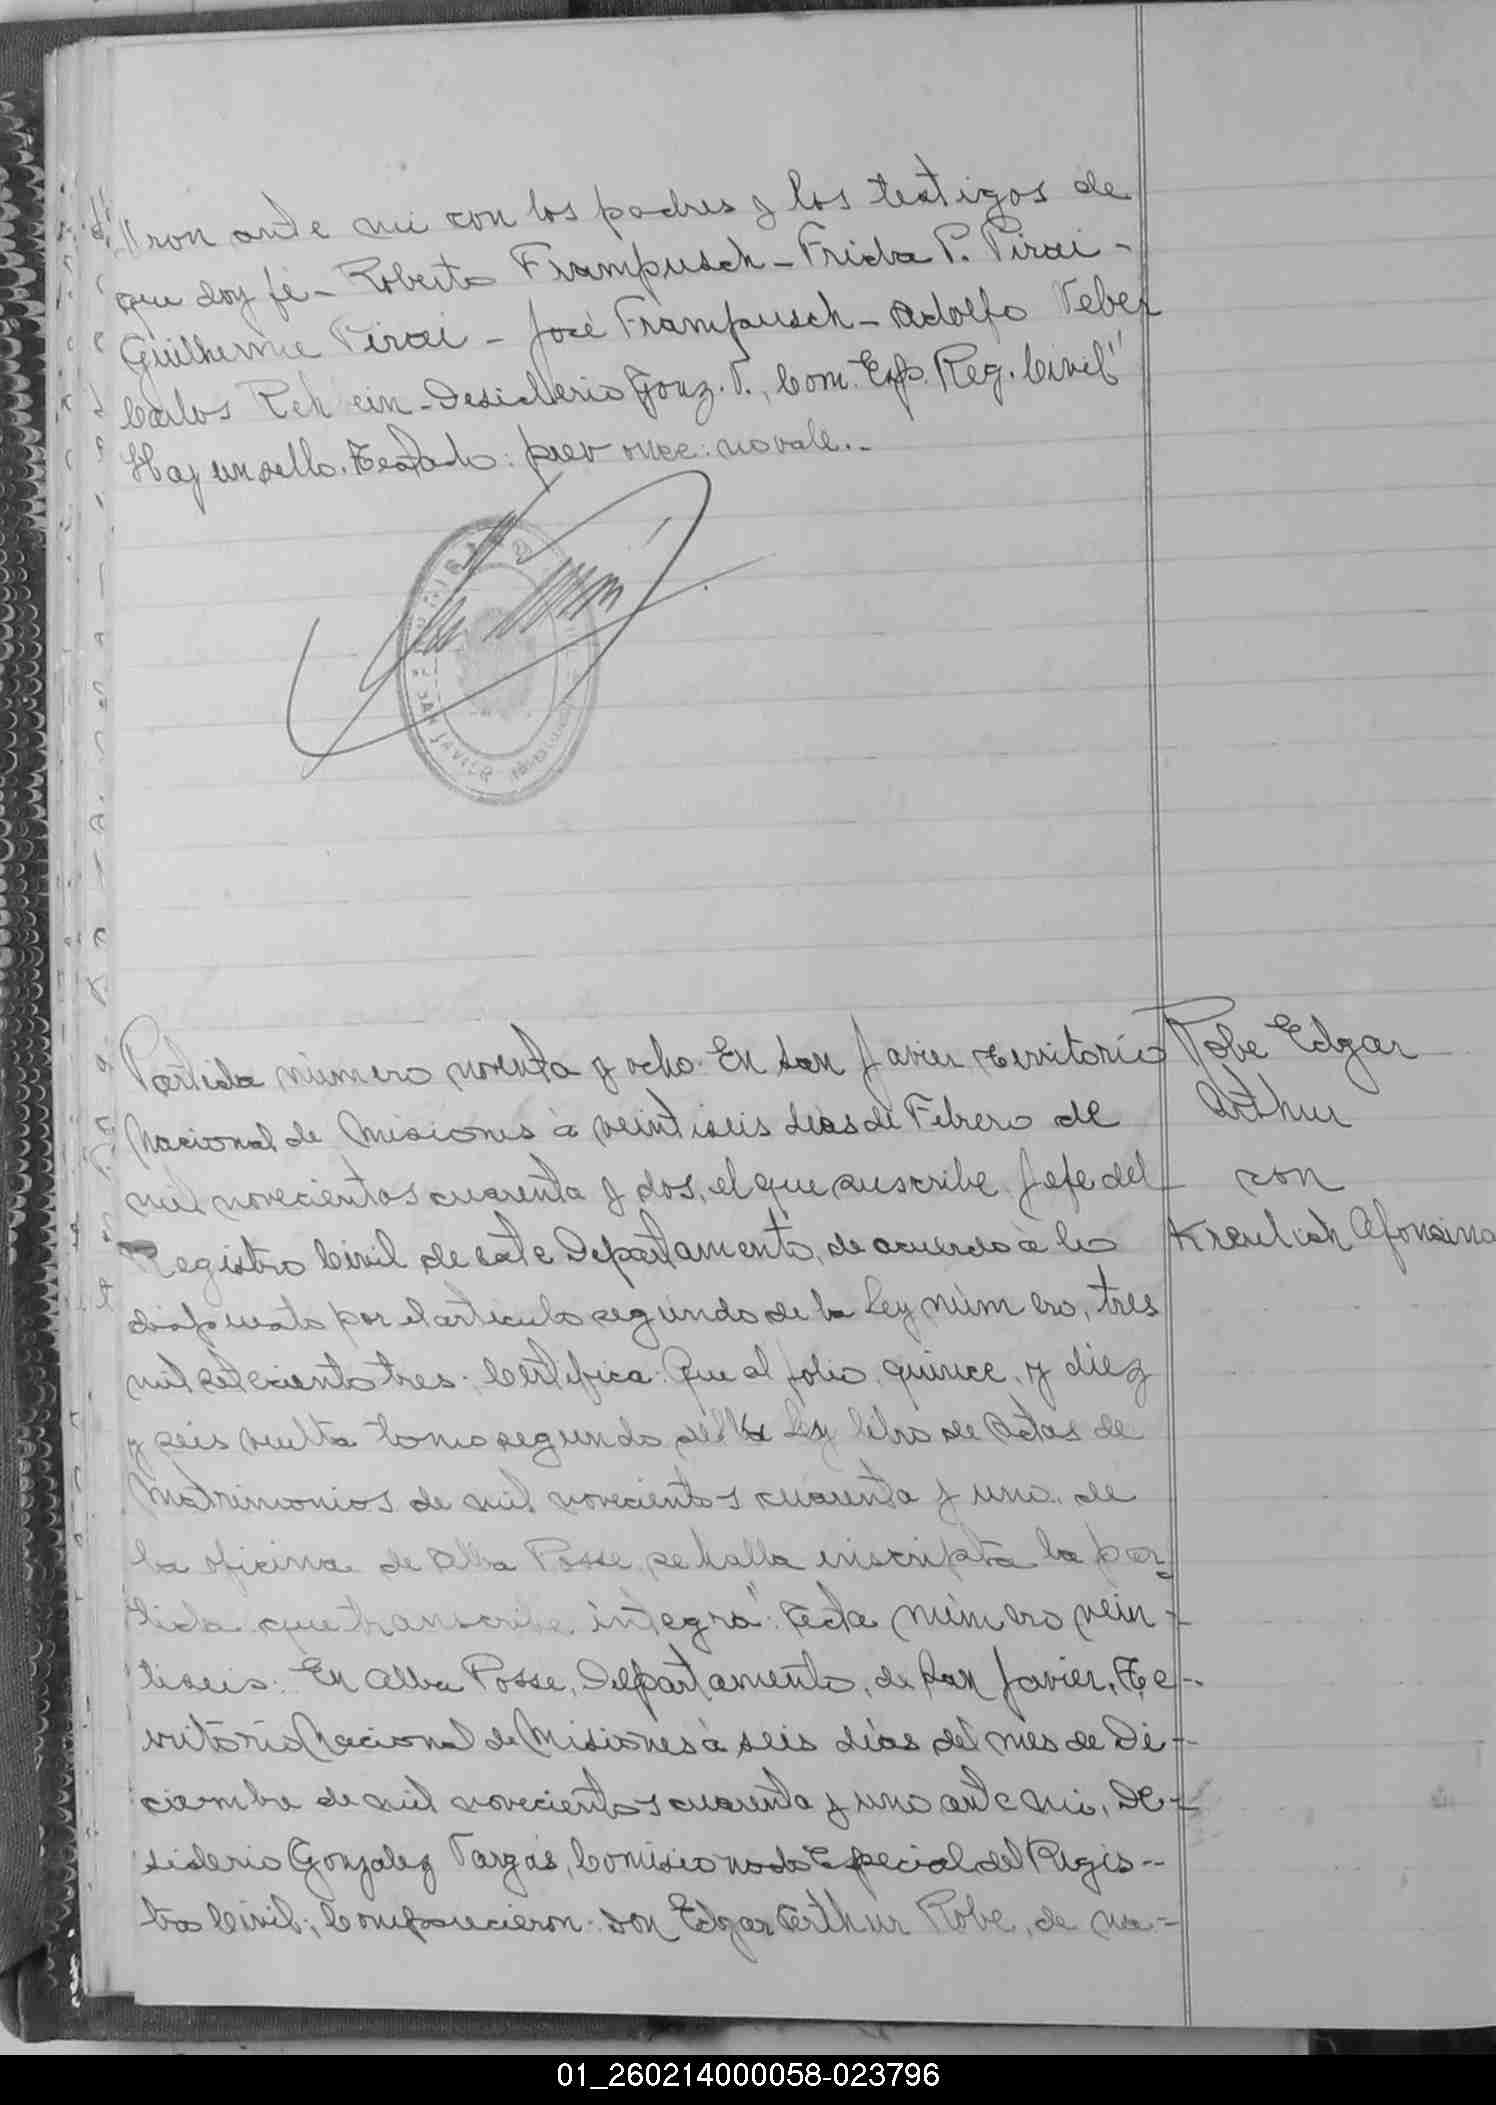 ron ante mi con los padres y los testigos de
que doy fé - Roberto Frampusch - Frida P. Pirai -
Guilherme Pirai - José Frampusch - Adolfo Veber
Carlos Reh ein - Desiderio Gonz. V., Com. Esp. Reg. Civil"
Hay un sello. Testado: once: no vale. -
SAN JAVIER
Partida número noventa y ocho. En San Javier Territorio
Nacional de Misiones á veintiseis dias de Febrero de
mil novecientos cuarenta y dos, el que suscribe Jefe del
Registro Civil de este Departamento, de acuerdo á lo
dispuesto por el articulo segundo de la Ley número, tres
mil setecientos tres. Certifica: Que al folio, quince, y diez
y seis vuelta tomo segundo, del libro de Actas de
Matrimonios de mil novecientos cuarenta y uno, de
la oficina de Alba Posse, se halla inscripta la par
tida que transcribe integra": Acta número vein -
tiseis. En Alba Posse, Departamento, de San Javier, Te -
rritorio Nacional de Misiones á seis días del mes de Di -
ciembre de mil novecientos cuarenta y uno ante mi, De -
siderio Gonzalez Vargas, Comisionado Especial del Regis --
tro Civil; Comparecieron: don Edgar Arthur Robe, de na -
Robe Edgar
Arthur
con
Afonsina
01_260214000058-023796